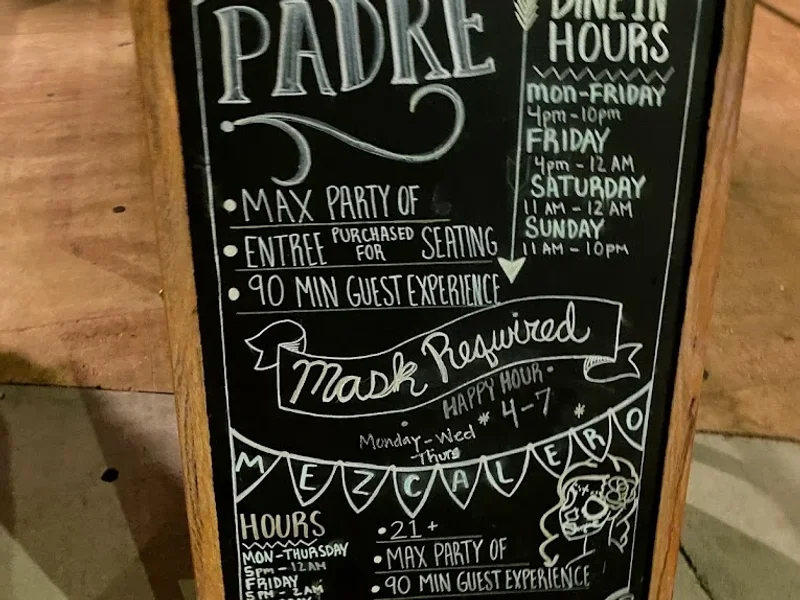 PADRE
• MAX PARTY OF
• ENTREE PURCHASED FOR SEATING
• 90 MIN GUEST EXPERIENCE
DINE IN
HOURS
MON-FRIDAY
4pm - 10pm
FRIDAY
4pm - 12 AM
SATURDAY
11 AM - 12 AM
SUNDAY
11 AM - 10pm
Mask Required
HAPPY HOUR
* 4-7 *
Monday - Wed
Thurs
MEZCALERO
HOURS
MON-THURSDAY
5pm - 12AM
FRIDAY
5PM - 2AM
• 21 +
• MAX PARTY OF
• 90 MIN GUEST EXPERIENCE